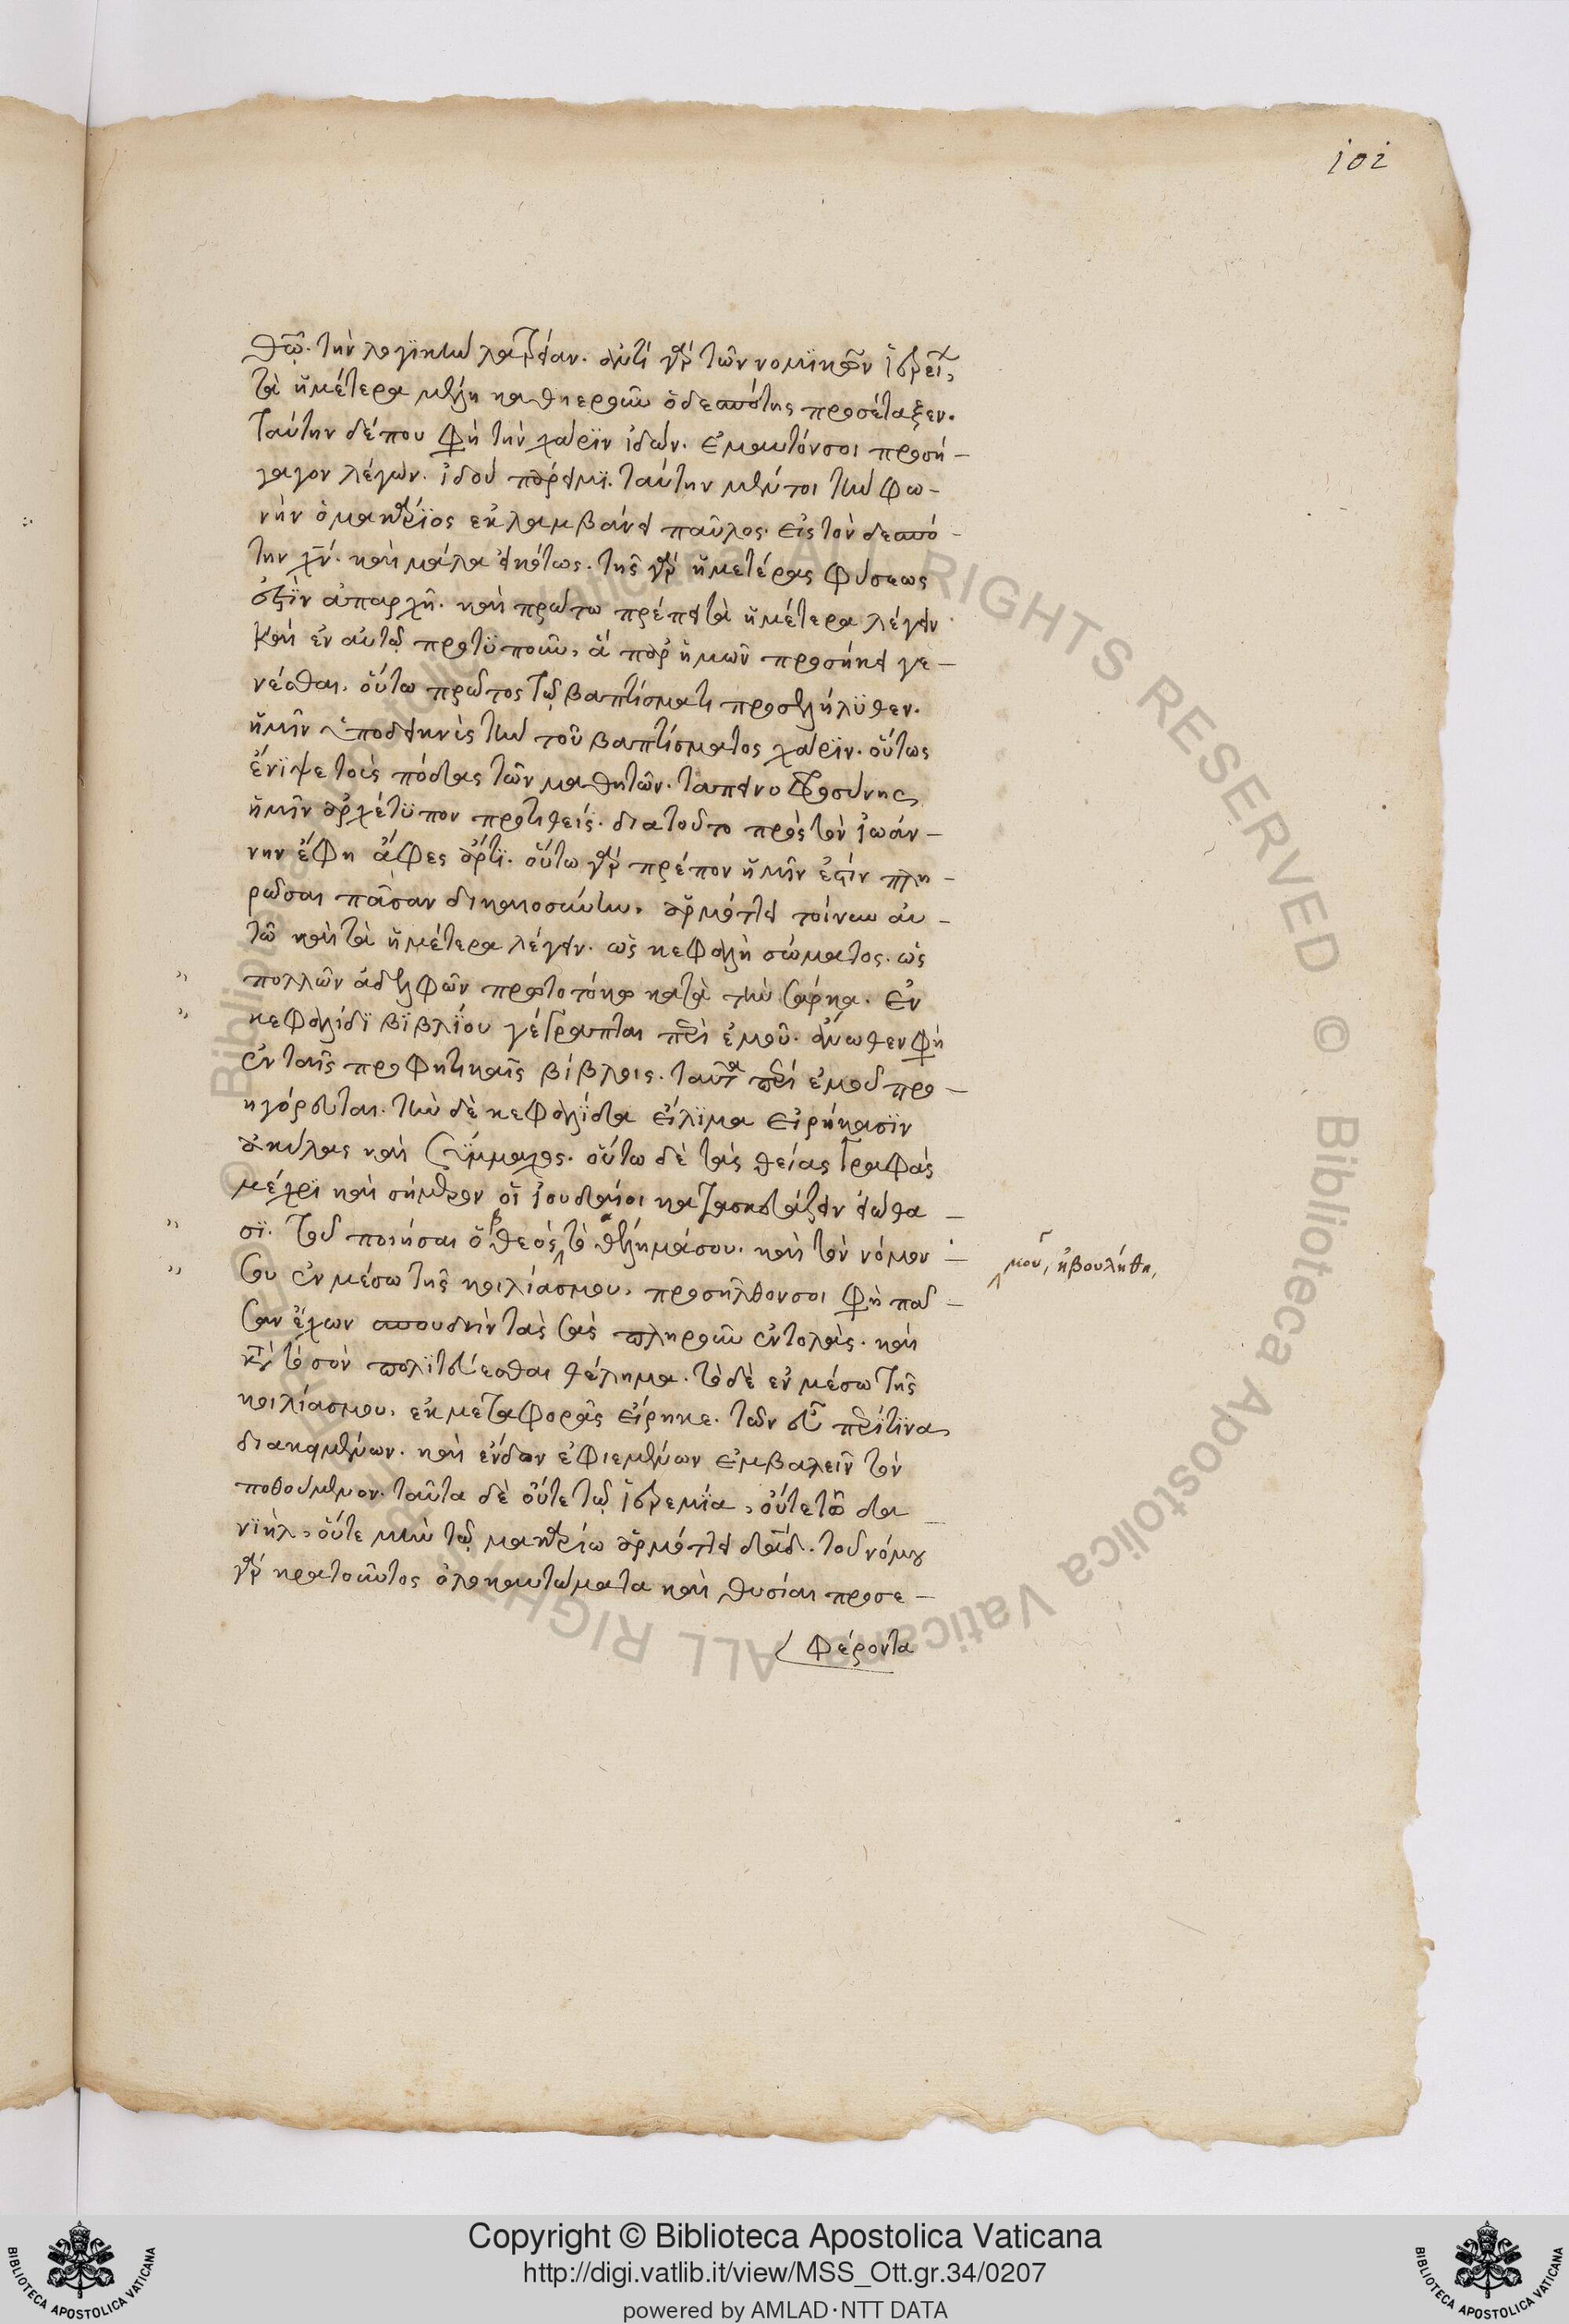 101
θῶ. τὴν λογϊκὴν λατρείαν. ἀντὶ γὰρ τῶν νομϊκῶν ἱερείων,
τὰ ἡμέτερα μέλη καθιεροῦν ὁ δεσπότης προσέταξεν.
Ταύτην δέ που φησὶ τὴν χάρϊν ἰδών. ἐμαυτόν σοι προσή –
γαγον λέγων. ἰδού πάρειμϊ. ταύτην μέντοι τὴν φω –
νὴν ὁ μακάρϊος ἐκλαμβάνει παῦλος. εἰς τὸν δεσπό –
την χν. καὶ μάλα εἰκότως. τῆς γὰρ ἡμετέρας φύσεως
ἐστϊν ἀπαρχή. καὶ πρώτω πρέπει τὰ ἡμέτερα λέγειν
καὶ ἐν αὐτῶ προτϋποῦν, ἃ παρ' ἡμῶν προσήκει γε –
νέσθαι. οὕτω πρῶτος τῷ βαπτίσματι προσελήλϋθεν.
ἡμῖν ὑποδεικνὺς τὴν τοῦ βαπτίσματος χάρϊν. οὕτως
ἔνϊψε τοὺς πόδας τῶν μαθητῶν. ταπεινοφροσύνης
ἡμῖν ἀρχέτϋπον προτιθείς. διατοῦτο πρὸς τὸν ἰωάν –
νην ἔφη ἄφες ἄρτϊ. οὕτω γὰρ πρέπον ἡμῖν ἐστίν πλη –
ρῶσαι πᾶσαν δικαιοσύνην. ἁρμόττει τοίνυν αὐ –
τῶ καὶ τὰ ἡμέτερα λέγειν. ὡς κεφαλὴ σώματος. ὡς
πολλῶν ἀδελφῶν πρωτοτόκω κατὰ τὴν σάρκα. ἐν
κεφαλίδϊ βϊβλΐου γέγραπται περὶ ἐμοῦ. ἄνωθεν φησὶ
ἐν ταῖς προφητικαῖς βίβλοις. ταῦτα περὶ ἐμοῦ προ –
ηγόρευται. τὴν δὲ κεφαλΐδα εἴλϊμα εἰρήκασϊν
ἀκύλας καὶ Σύμμαχος. οὕτω δὲ τὰς θείας γραφὰς
μέχρϊ καὶ σήμερον οἱ ἰουδαῖοι κατασκευάζειν εἰώθα –
σϊ. τοῦ ποιῆσαι ὁ θεός τὸ θέλημά σου. καὶ τὸν νόμον –
μου, ἠβουλήθην,
σου ἐν μέσω τῆς κοιλίας μου. προσῆλθον σοι φησὶ πᾶ –
σαν ἔχων σπουδὴν τὰς σὰς πληροῦν ἐντολάς. καὶ
κατὰ τὸ σὸν πολϊτεύεσθαι θέλημα. τὸ δὲ ἐν μέσω τῆς
κοιλίας μου, ἐκ μεταφορᾶς εἴρηκε. τῶν εὖ περΐ τϊνα,
διακειμένων. καὶ ἔνδον ἐφιεμένων ἐμβαλεῖν τὸν
ποθούμενον. ταῦτα δὲ οὔτε τῷ ἱερεμΐα, οὔτε τῶ δα –
νϊὴλ, οὔτε μὴν τῷ μακαρίω ἁρμόττει δαδ. τοῦ νόμου
γὰρ κρατοῦντος ὁλοκαυτώματα καὶ θυσίαι προσε –
φέροντο
Copyright © Biblioteca Apostolica Vaticana
http://digi.vatlib.it/view/MSS_Ott.gr.34/0207
powered by AMLAD·NTT DATA